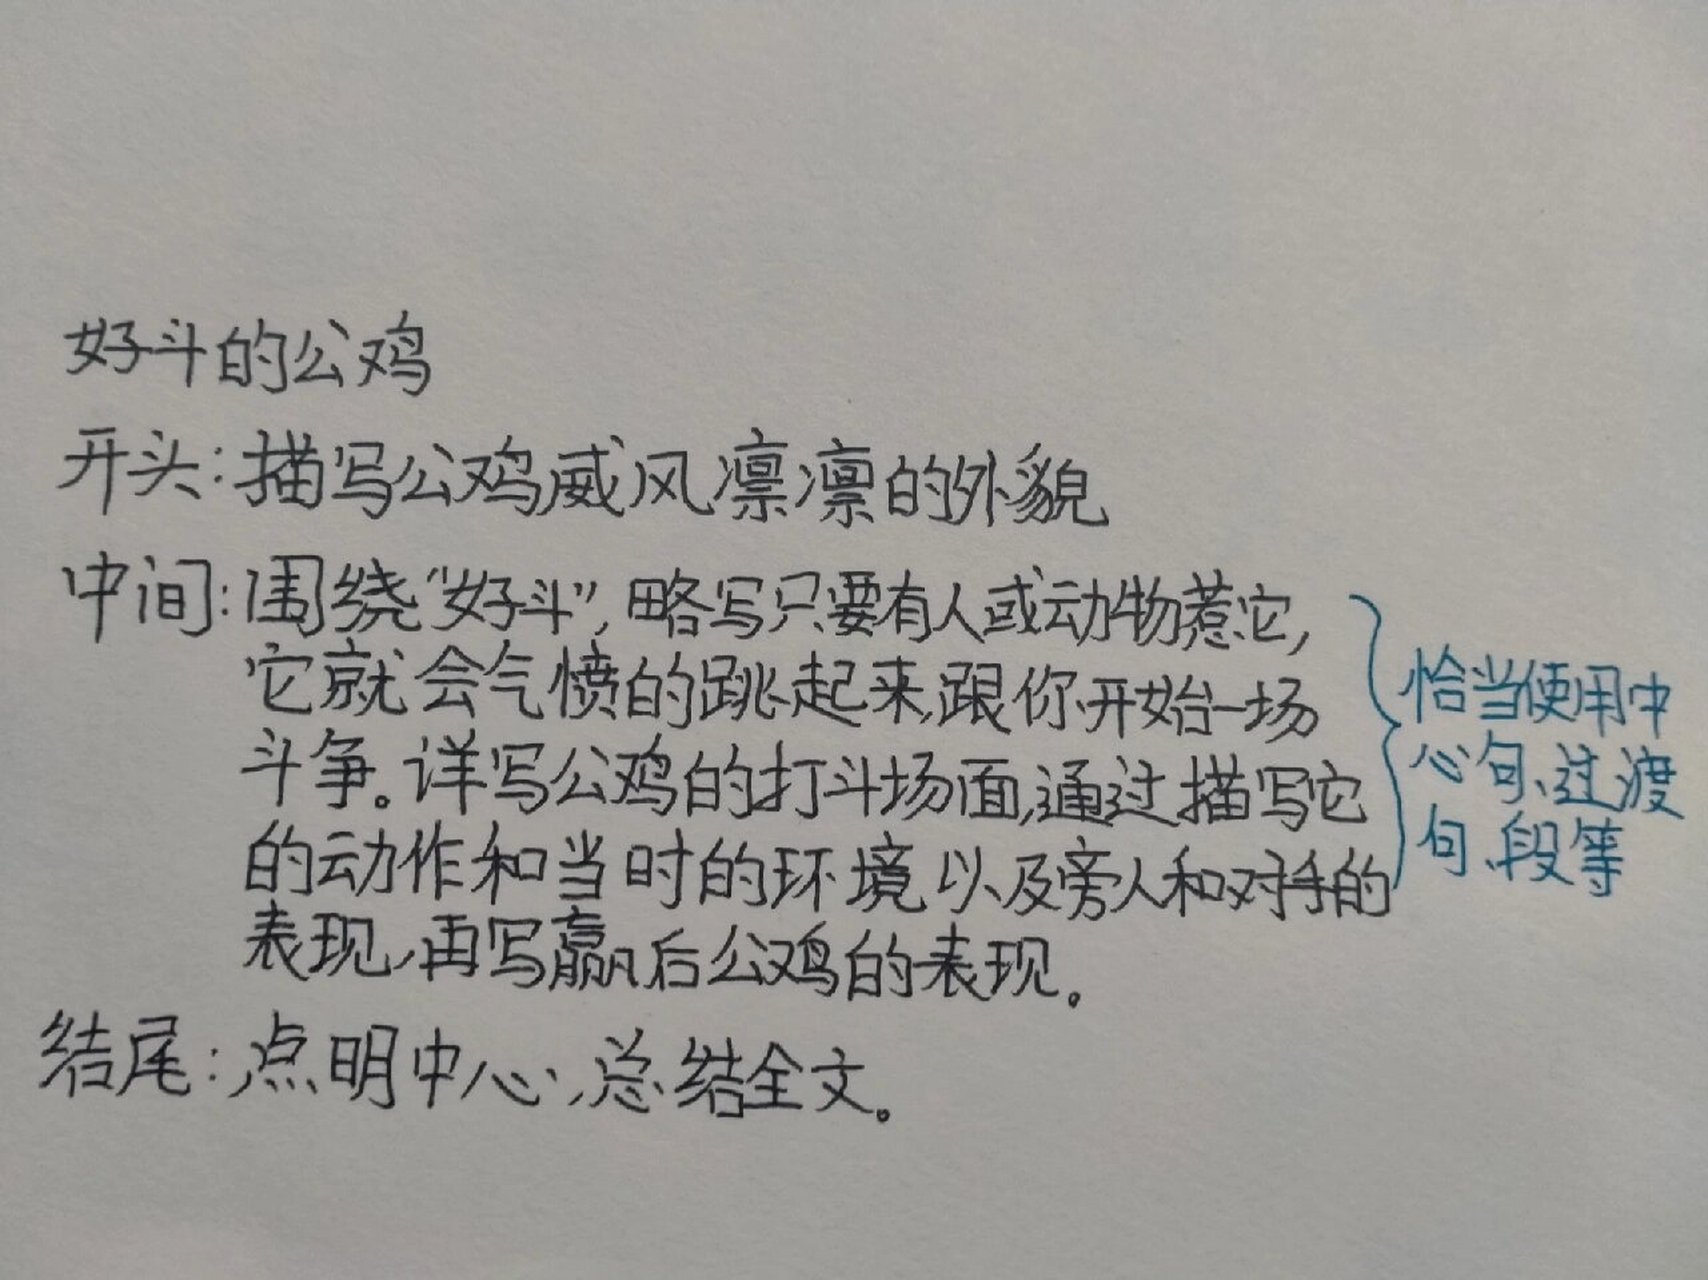 好斗的公鸡
开头:描写公鸡威风凛凛的外貌
中间:围绕“好斗”,略写只要有人或动物惹它,
它就会气愤的跳起来,跟你开始一场
斗争。详写公鸡的打斗场面,通过描写它
的动作和当时的环境以及旁人和对手的
表现,再写赢后公鸡的表现。
恰当使用中
心句、过渡
句、段等
结尾:点明中心,总结全文。